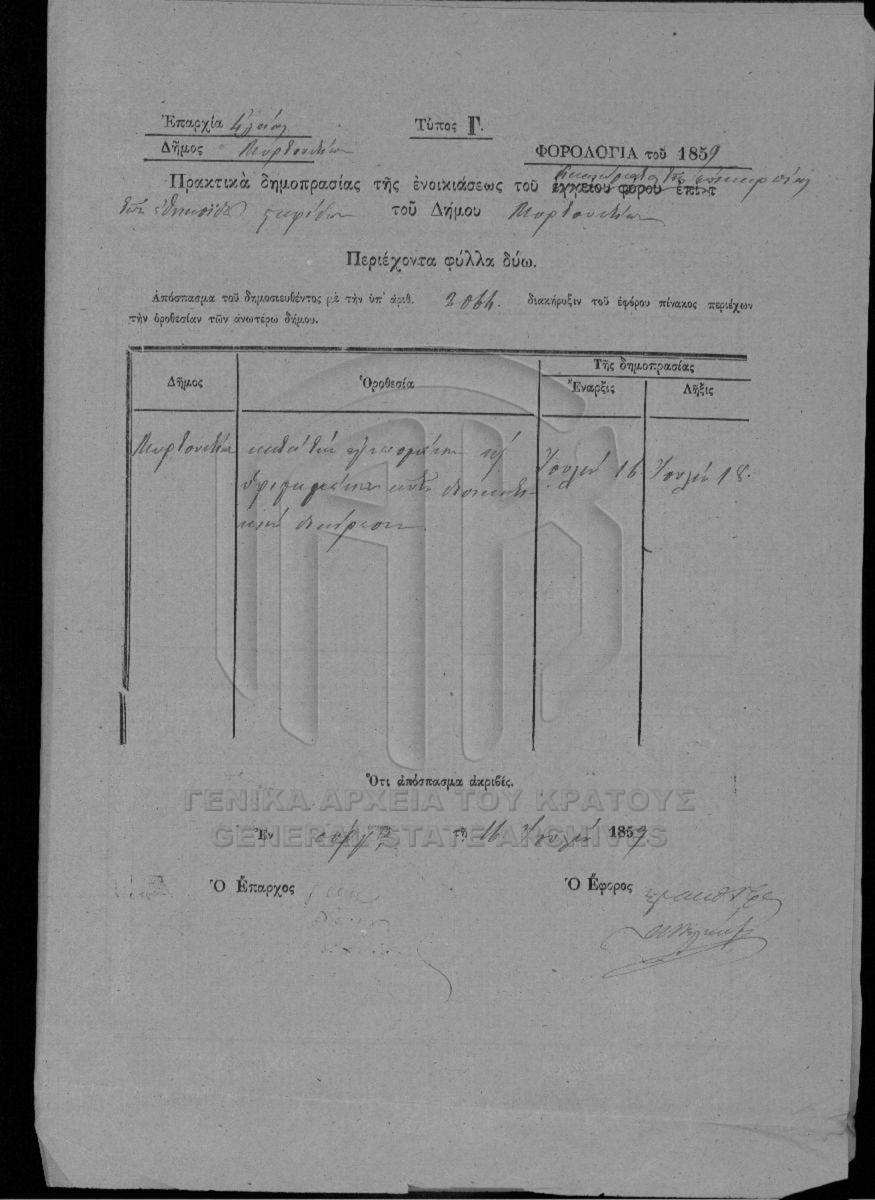 Ἐπαρχία Ἠλείας
Τύπος Γ.
Δῆμος Μυρτουντίων
ΦΟΡΟΛΟΓΙΑ τοῦ 1859
δικαιώματος τῆς ἐπικαρπίας
Πρακτικὰ δημοπρασίας τῆς ἐνοικιάσεως τοῦ ἐγγείου φόρου ἐπὶ τ
τῶν σταφίδων τοῦ Δήμου Μυρτουντίων
Περιέχοντα φύλλα δύω.
Ἀπόσπασμα τοῦ δημοσιευθέντος μὲ τὴν ὑπ' ἀριθ. διακήρυξιν τοῦ ἐφόρου πίνακος περιέχων
τὴν ὁροθεσίαν τῶν ἀνωτέρω δήμου.
Τῆς δημοπρασίας
Δῆμος Ὁροθεσία Ἔναρξις Λῆξις
Μυρτουντίων κατὰ τὴν Ἰουλίου 16 Ἰουλίου 18.
διοικητι
κὴν διαίρεσιν
Ὅτι ἀπόσπασμα ἀκριβές.
ΓΕΝΙΚΑ ΑΡΧΕΙΑ ΤΟΥ ΚΡΑΤΟΥΣ
GENERAL STATE ARCHIVES
Ἐν Πύργῳ τῇ 16 Ἰουλίου 1859
Ὁ Ἔπαρχος Ὁ Ἔφορος